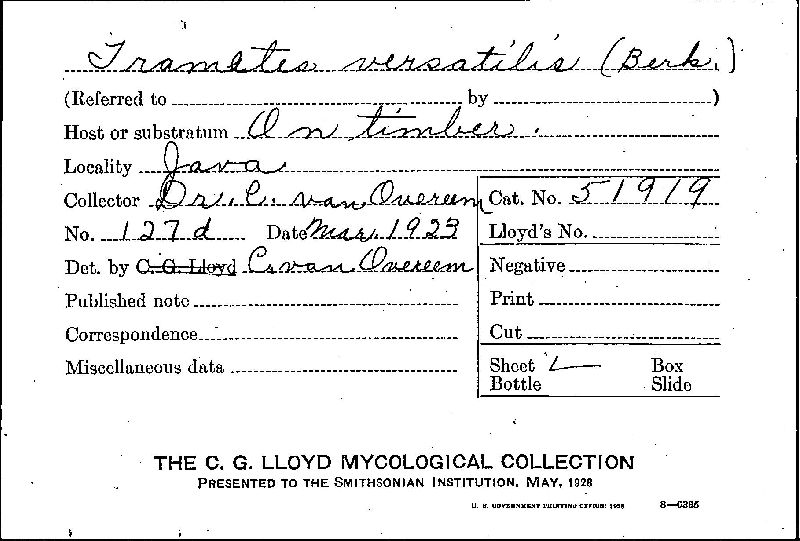 Trametes versatilis (Berk.)
(Referred to by )
Host or substratum On timber.
Locality Java
Collector Dr. C. van Overeem Cat. No. 51919
No. 127d Date Mar. 1923 Lloyd's No.
Det. by C. G. Lloyd C. van Overeem Negative
Published note Print
Correspondence Cut
Miscellaneous data Sheet Box
Bottle Slide
THE C. G. LLOYD MYCOLOGICAL COLLECTION
PRESENTED TO THE SMITHSONIAN INSTITUTION, MAY, 1928
U. S. GOVERNMENT PRINTING OFFICE: 1928 8—6385